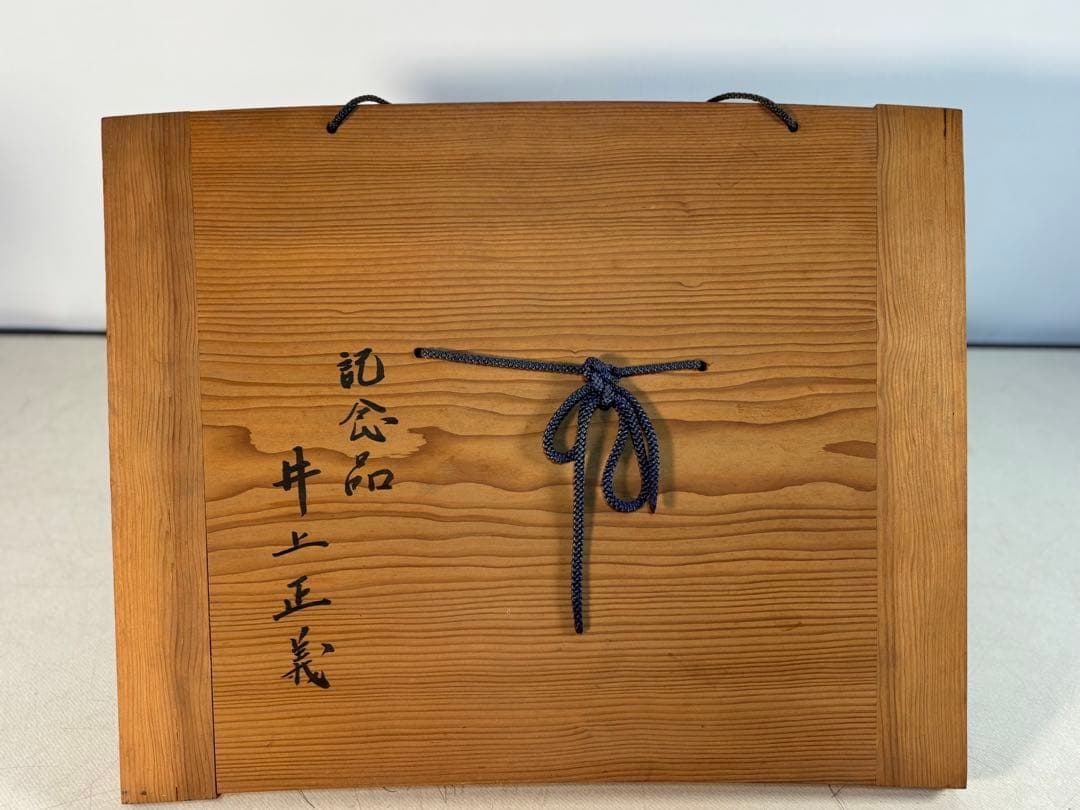 記念品
井上正義